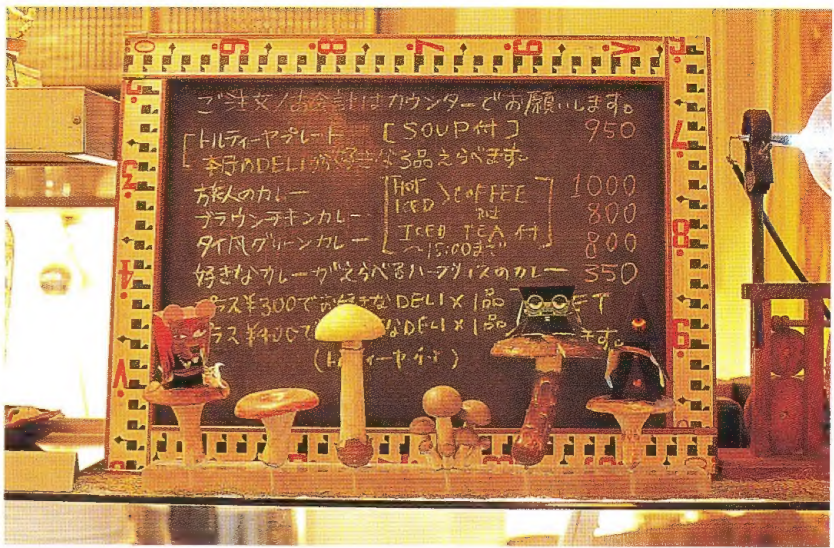 ご注文/お会計はカウンターでお願いします。
トルティーヤプレート [SOUP付] 950
本日のDELIから好きな3品えらべます。
旅人のカレー 1000
ブラウンチキンカレー 800
タイ風グリーンカレー 800
[HOT ICED > COFFEE
又は
ICED TEA 付
〜15:00まで]
好きなカレーがえらべるハーフサイズのカレー 350
プラス¥300でお好きなDELI×1品
プラス¥400で なDELI×1品 きます。